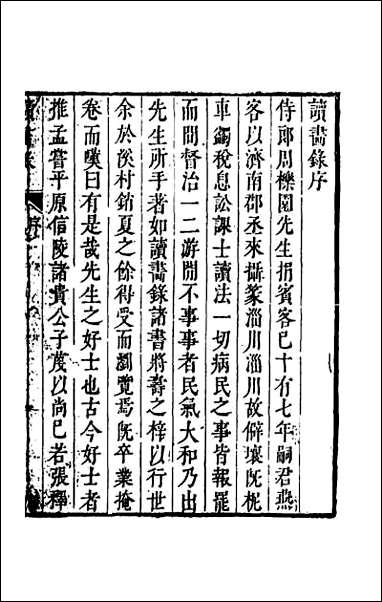 讀畫錄序
侍郎周櫟園先生捐賓客已十有七年嗣君燕
客以濟南郡丞來攝篆淄川淄川故僻壤旣柅
車蠲稅息訟課士讀法一切病民之事皆報罷
而間督治一二游閒不事事者民氣大和乃出
先生所手著如讀畫錄諸書將壽之梓以行世
余於溪村銷夏之餘得受而瀏覽焉旣卒業掩
卷而嘆曰有是哉先生之好士也古今好士者
推孟嘗平原信陵諸貴公子蔑以尚已若張釋
序